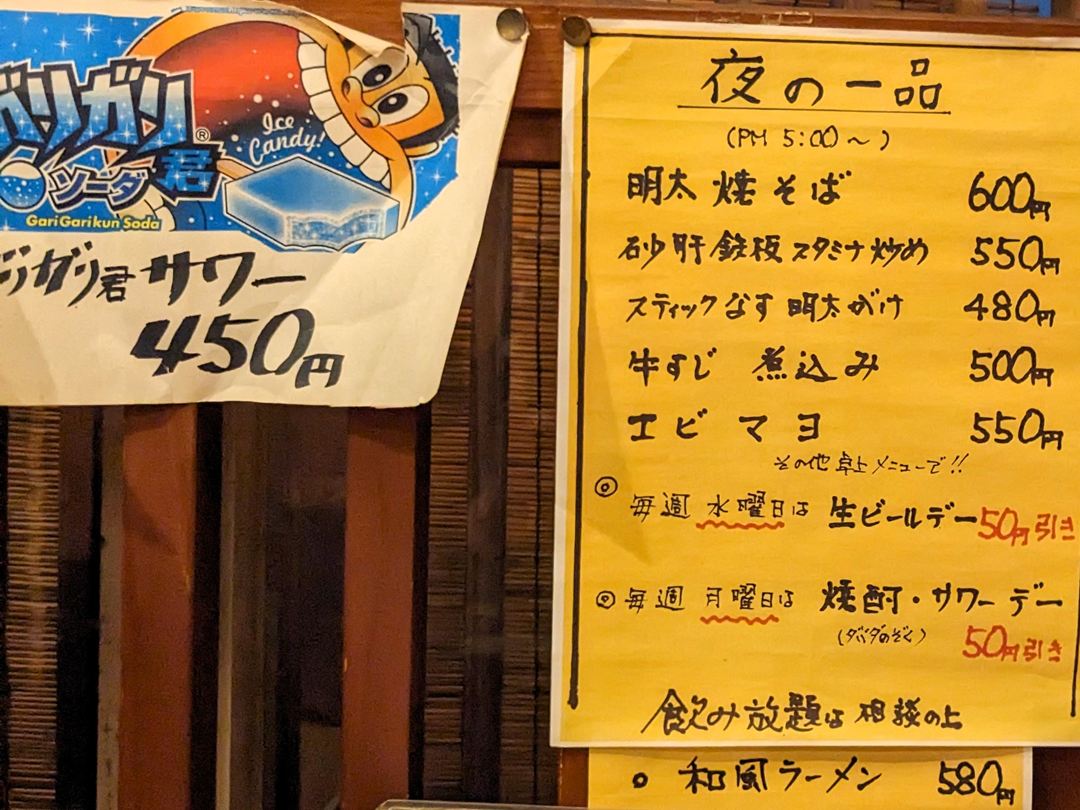 ガリガリ君®
ソーダ
GariGarikun Soda
Ice
Candy!
ガリガリ君サワー
450円
夜の一品
(PM 5:00~)
明太焼そば 600円
砂肝鉄板スタミナ炒め 550円
スティックなす明太がけ 480円
牛すじ 煮込み 500円
エビマヨ 550円
その他卓上メニューで!!
◎ 毎週水曜日は 生ビールデー50円引き
◎ 毎週月曜日は 焼酎・サワーデー
(ダバダのぞく) 50円引き
飲み放題は相談の上
○ 和風ラーメン 580円